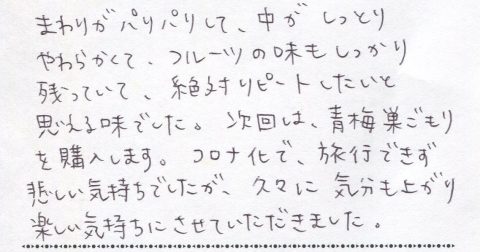 まわりがパリパリして、中がしっとり
やわらかくて、フルーツの味もしっかり
残っていて、絶対リピートしたいと
思える味でした。次回は、青梅巣ごもり
を購入します。コロナ化で、旅行できず
悲しい気持ちでしたが、久々に気分も上がり
楽しい気持ちにさせていただきました。